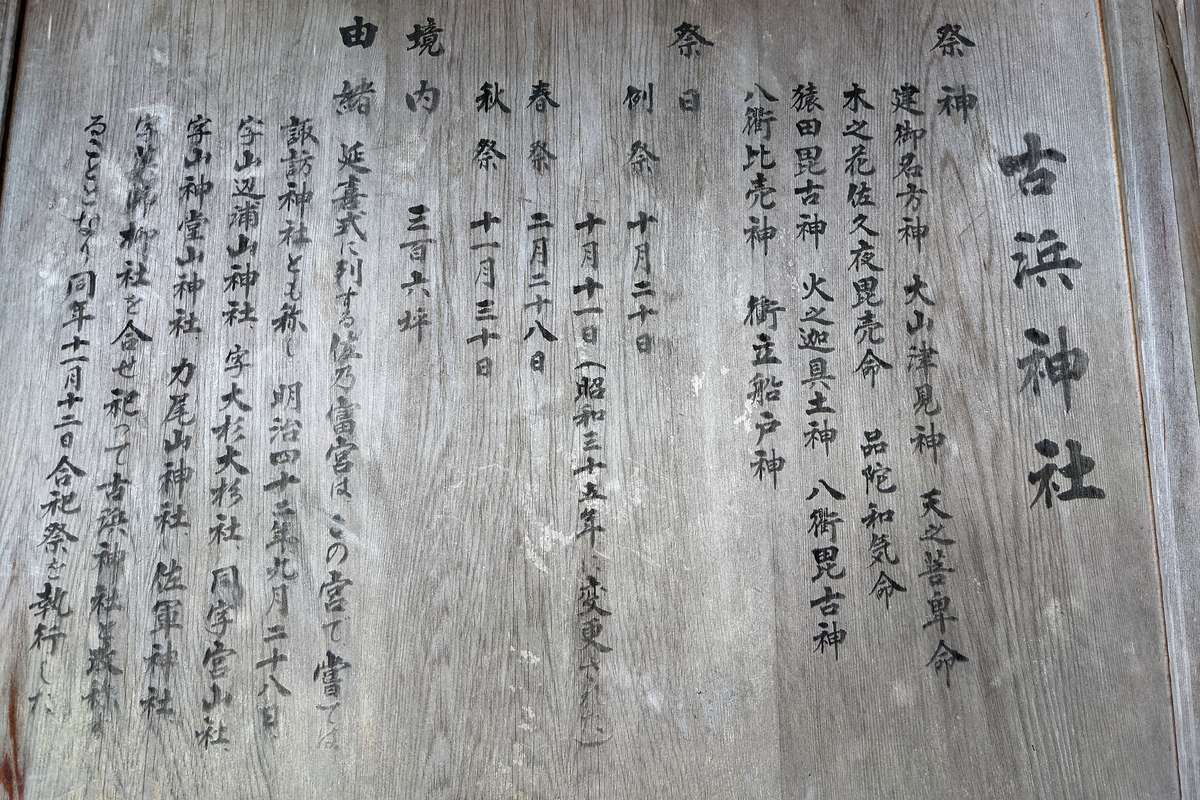 古浜神社
祭神
建御名方神 大山津見神 天之菩卑命
木之花佐久夜毘売命 品陀和気命
猿田毘古神 火之迦具土神 八衢毘古神
八衢比売神 衝立船戸神
祭日
例祭 十月二十日
十月十一日(昭和三十五年に変更された)
春祭 二月二十八日
秋祭 十一月三十日
境内 三百六坪
由緒 延喜式に列する佐乃富宮はこの宮で嘗ては
諏訪神社とも称し 明治四十二年九月二十八日
字山辺浦山神社、字大杉大杉社、同字宮山社、
字山神堂山神社、力尾山神社、佐軍神社、
字 柳社を合せ祀って古浜神社と改称す
ることとなり同年十一月十二日合祀祭を執行した